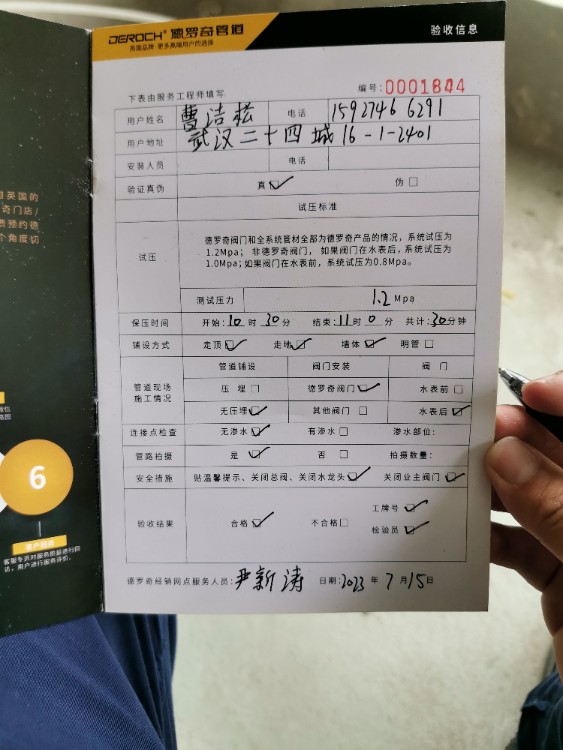 DEROCH® 德罗奇管道
英国品牌 更多高端用户的选择
验收信息
下表由服务工程师填写
编号:0001844
用户姓名 曹洁松 电话 15927466291
用户地址 武汉二十四城16-1-2401
安装人员 电话
验证真伪 真☑ 伪☐
试压标准
试压
德罗奇阀门和全系统管材全部为德罗奇产品的情况，系统试压为
1.2Mpa； 非德罗奇阀门， 如果阀门在水表后，系统试压为
1.0Mpa；如果阀门在水表前，系统试压为0.8Mpa。
测试压力 1.2 Mpa
保压时间 开始:10时30分 结束:11时0分 共计:30分钟
铺设方式 走顶☑ 走地☑ 墙体☑ 明管☐
管道现场
施工情况
管道铺设 阀门安装 阀 门
压 埋☐ 德罗奇阀门☑ 水表前☐
无压埋☑ 其他阀门☐ 水表后☑
连接点检查 无渗水☑ 有渗水☐ 渗水部位:
管路拍摄 是☑ 否☐ 拍摄数量:
安全措施 贴温馨提示、关闭总阀、关闭水龙头☑ 关闭业主阀门☑
验收结果 合格☑ 不合格☐
工牌号☑
检验员☑
德罗奇经销网点服务人员: 尹新涛 日期:2023年7月15日
自英国的
奇门店/
费预约德
个角度切
6
客服专员对服务质量进行回
访，用户进行服务评价.